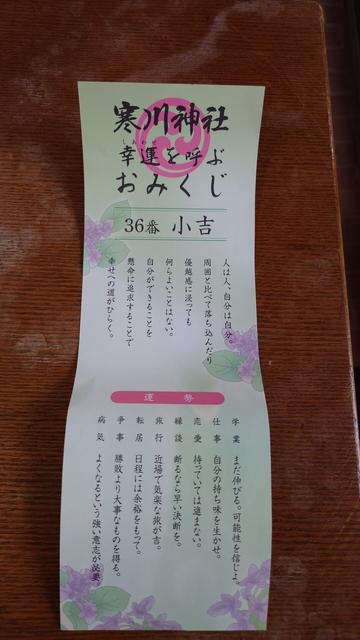 寒川神社
しあわせ
幸運を呼ぶ
おみくじ
36番 小吉
人は人、自分は自分。
周囲と比べて落ち込んだり
優越感に浸っても
何らよいことはない。
自分ができることを
懸命に追求することで
幸せへの道がひらく。
運勢
学業 まだ伸びる。可能性を信じよ。
仕事 自分の持ち味を生かせ。
恋愛 待っていては進まない。
縁談 断るなら早い決断を。
旅行 近場で気楽な旅が吉。
転居 日程には余裕をもって。
争事 勝敗より大事なものを得る。
病気 よくなるという強い意志が必要。